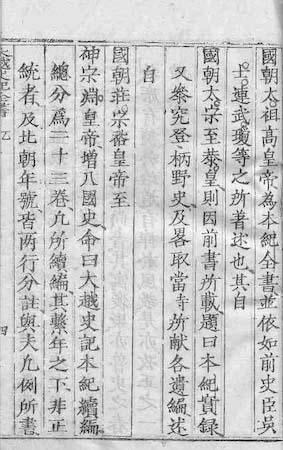 國朝太祖高皇帝為本紀全書並依如前史臣吳
士連武瓊等之所著述也其自
國朝太宗至恭皇則因前書所載題曰本紀實錄
又參究登柄野史及畧取當寺所獻各遺編述
自
國朝莊宗裕皇帝至
神宗淵皇帝增入國史命曰大越史記本紀續編
總分為二十三卷凡所續編其繫年之下非正
統者及北朝年號皆两行分註與夫凡例所書
大越史記全書
四